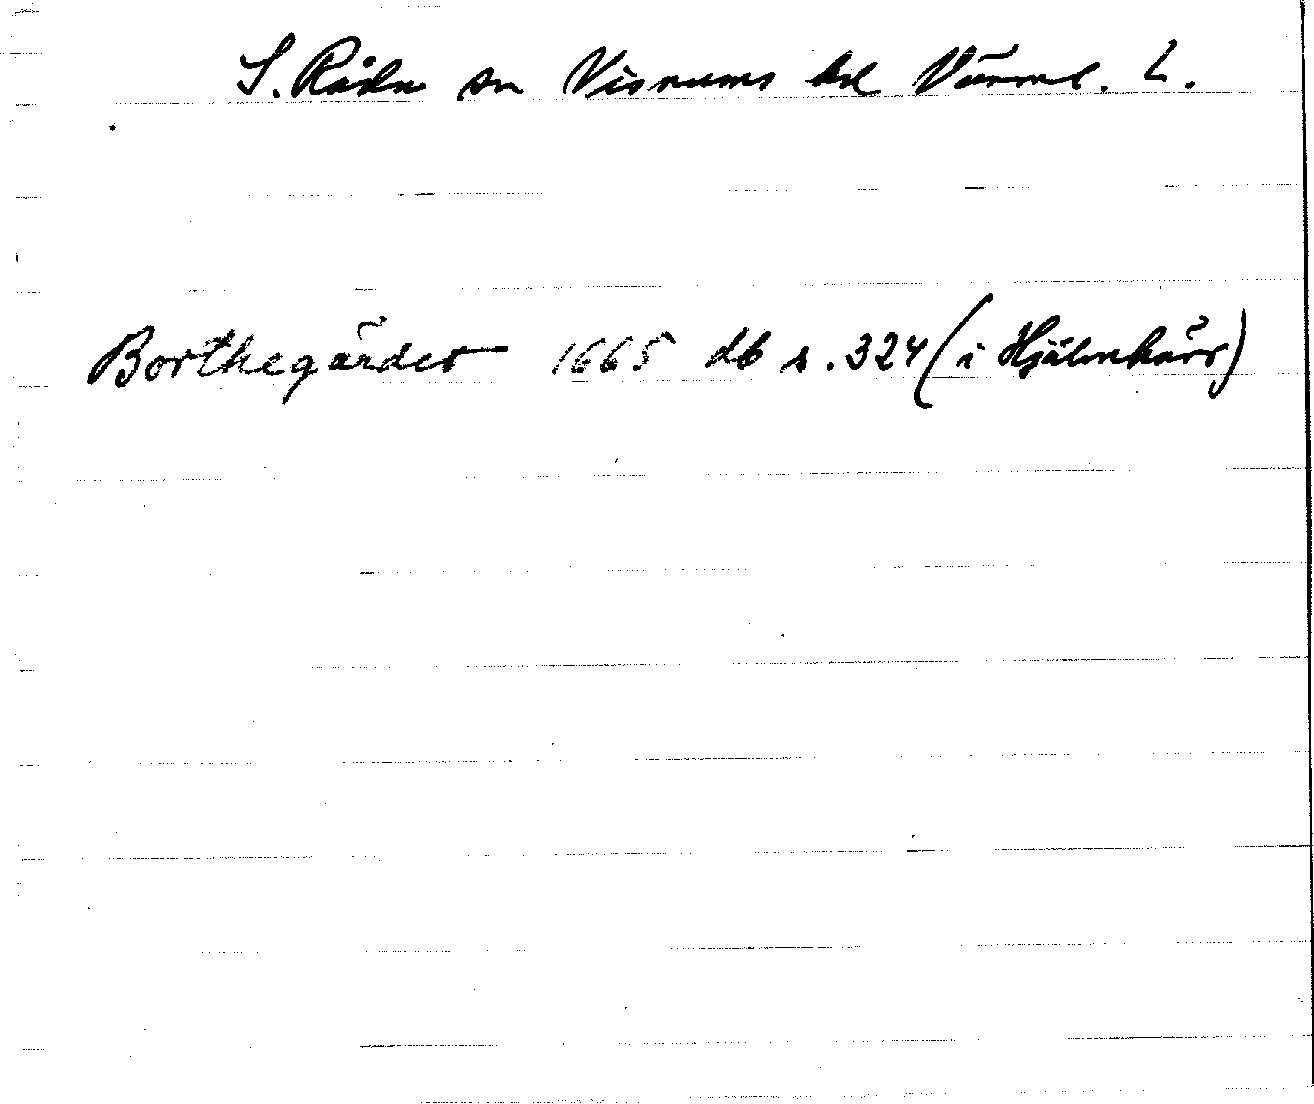 S. Råda sn Visnums hd Värml. L.
Borthegärdet 1665 db s. 324 (i Hjälmkärr)